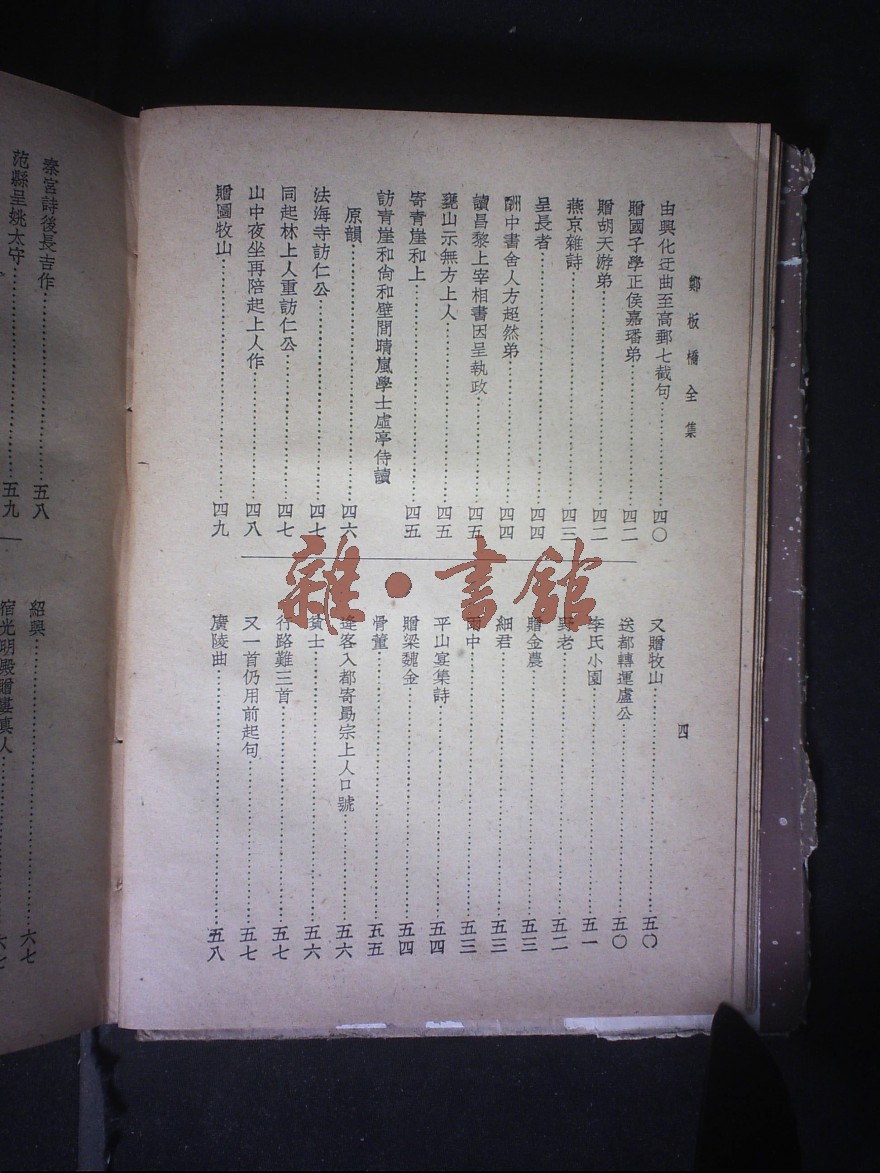 鄭板橋全集
四
由興化迂曲至高郵七截句……四〇
贈國子學正侯嘉璠弟……四二
贈胡天游弟……四二
燕京雜詩……四三
呈長者……四四
酬中書舍人方超然弟……四四
讀昌黎上宰相書因呈執政……四五
甕山示無方上人……四五
寄青崖和上……四五
訪青崖和尙和壁間晴嵐學士虛亭侍讀
原韻……四六
法海寺訪仁公……四七
同起林上人重訪仁公……四七
山中夜坐再陪起上人作……四八
贈圖牧山……四九
又贈牧山……五〇
送都轉運盧公……五〇
李氏小園……五一
野老……五二
贈金農……五三
細君……五三
雨中……五三
平山宴集詩……五四
贈梁魏金……五四
骨董……五五
逢客入都寄勗宗上人口號……五六
貧士……五六
行路難三首……五七
又一首仍用前起句……五七
廣陵曲……五八
秦宮詩後長吉作……五八
范縣呈姚太守……五九
紹興……六七
宿光明殿贈婁真人……六七
雜·書館